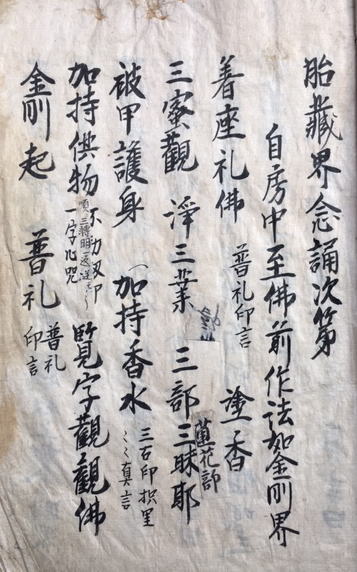 胎藏界念誦次第
自房中至佛前作法如金剛界
着座礼佛 普礼印言 塗香
三密觀 淨三業 三部三昧耶
蓮花部
被甲護身 加持香水 三古印枳里
〻〻真言
加持供物 不動刀印
順三轉明
一字心咒 覧字觀 觀佛
金剛起 普礼 普礼
印言